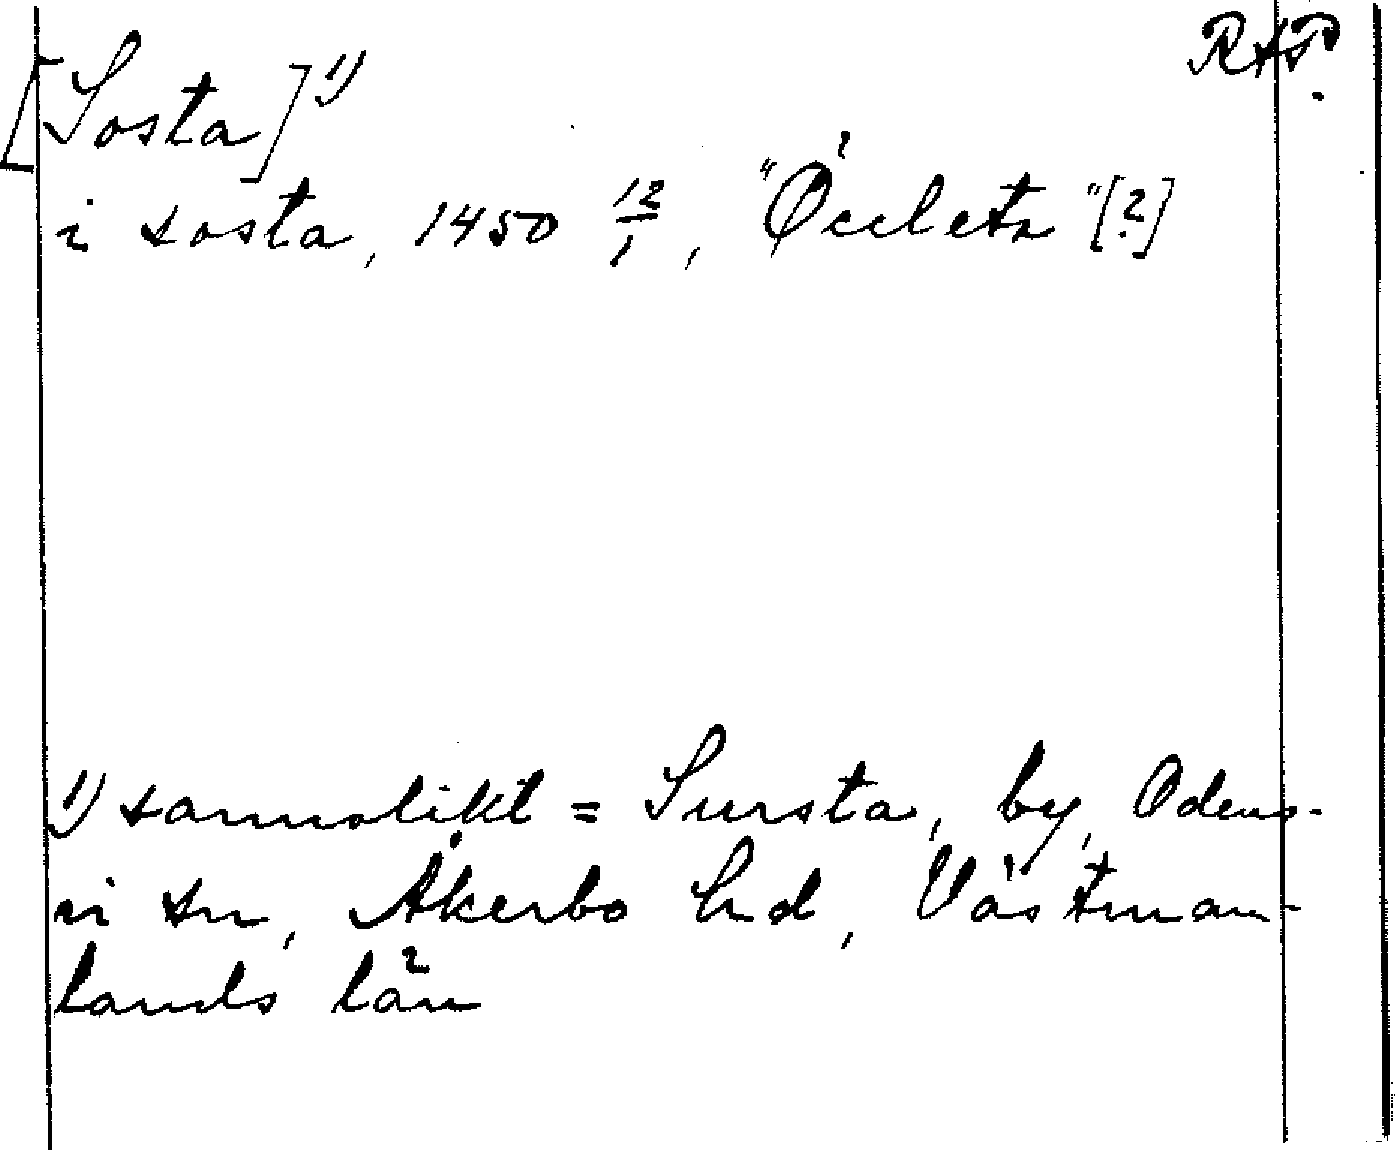 RAP.
[Sosta]¹⁾
i sosta, 1450 12/1, "Öculeta"[?]
1) sannolikt = Sursta, by, Odens-
vi sn, Åkerbo hd, Västman-
lands län